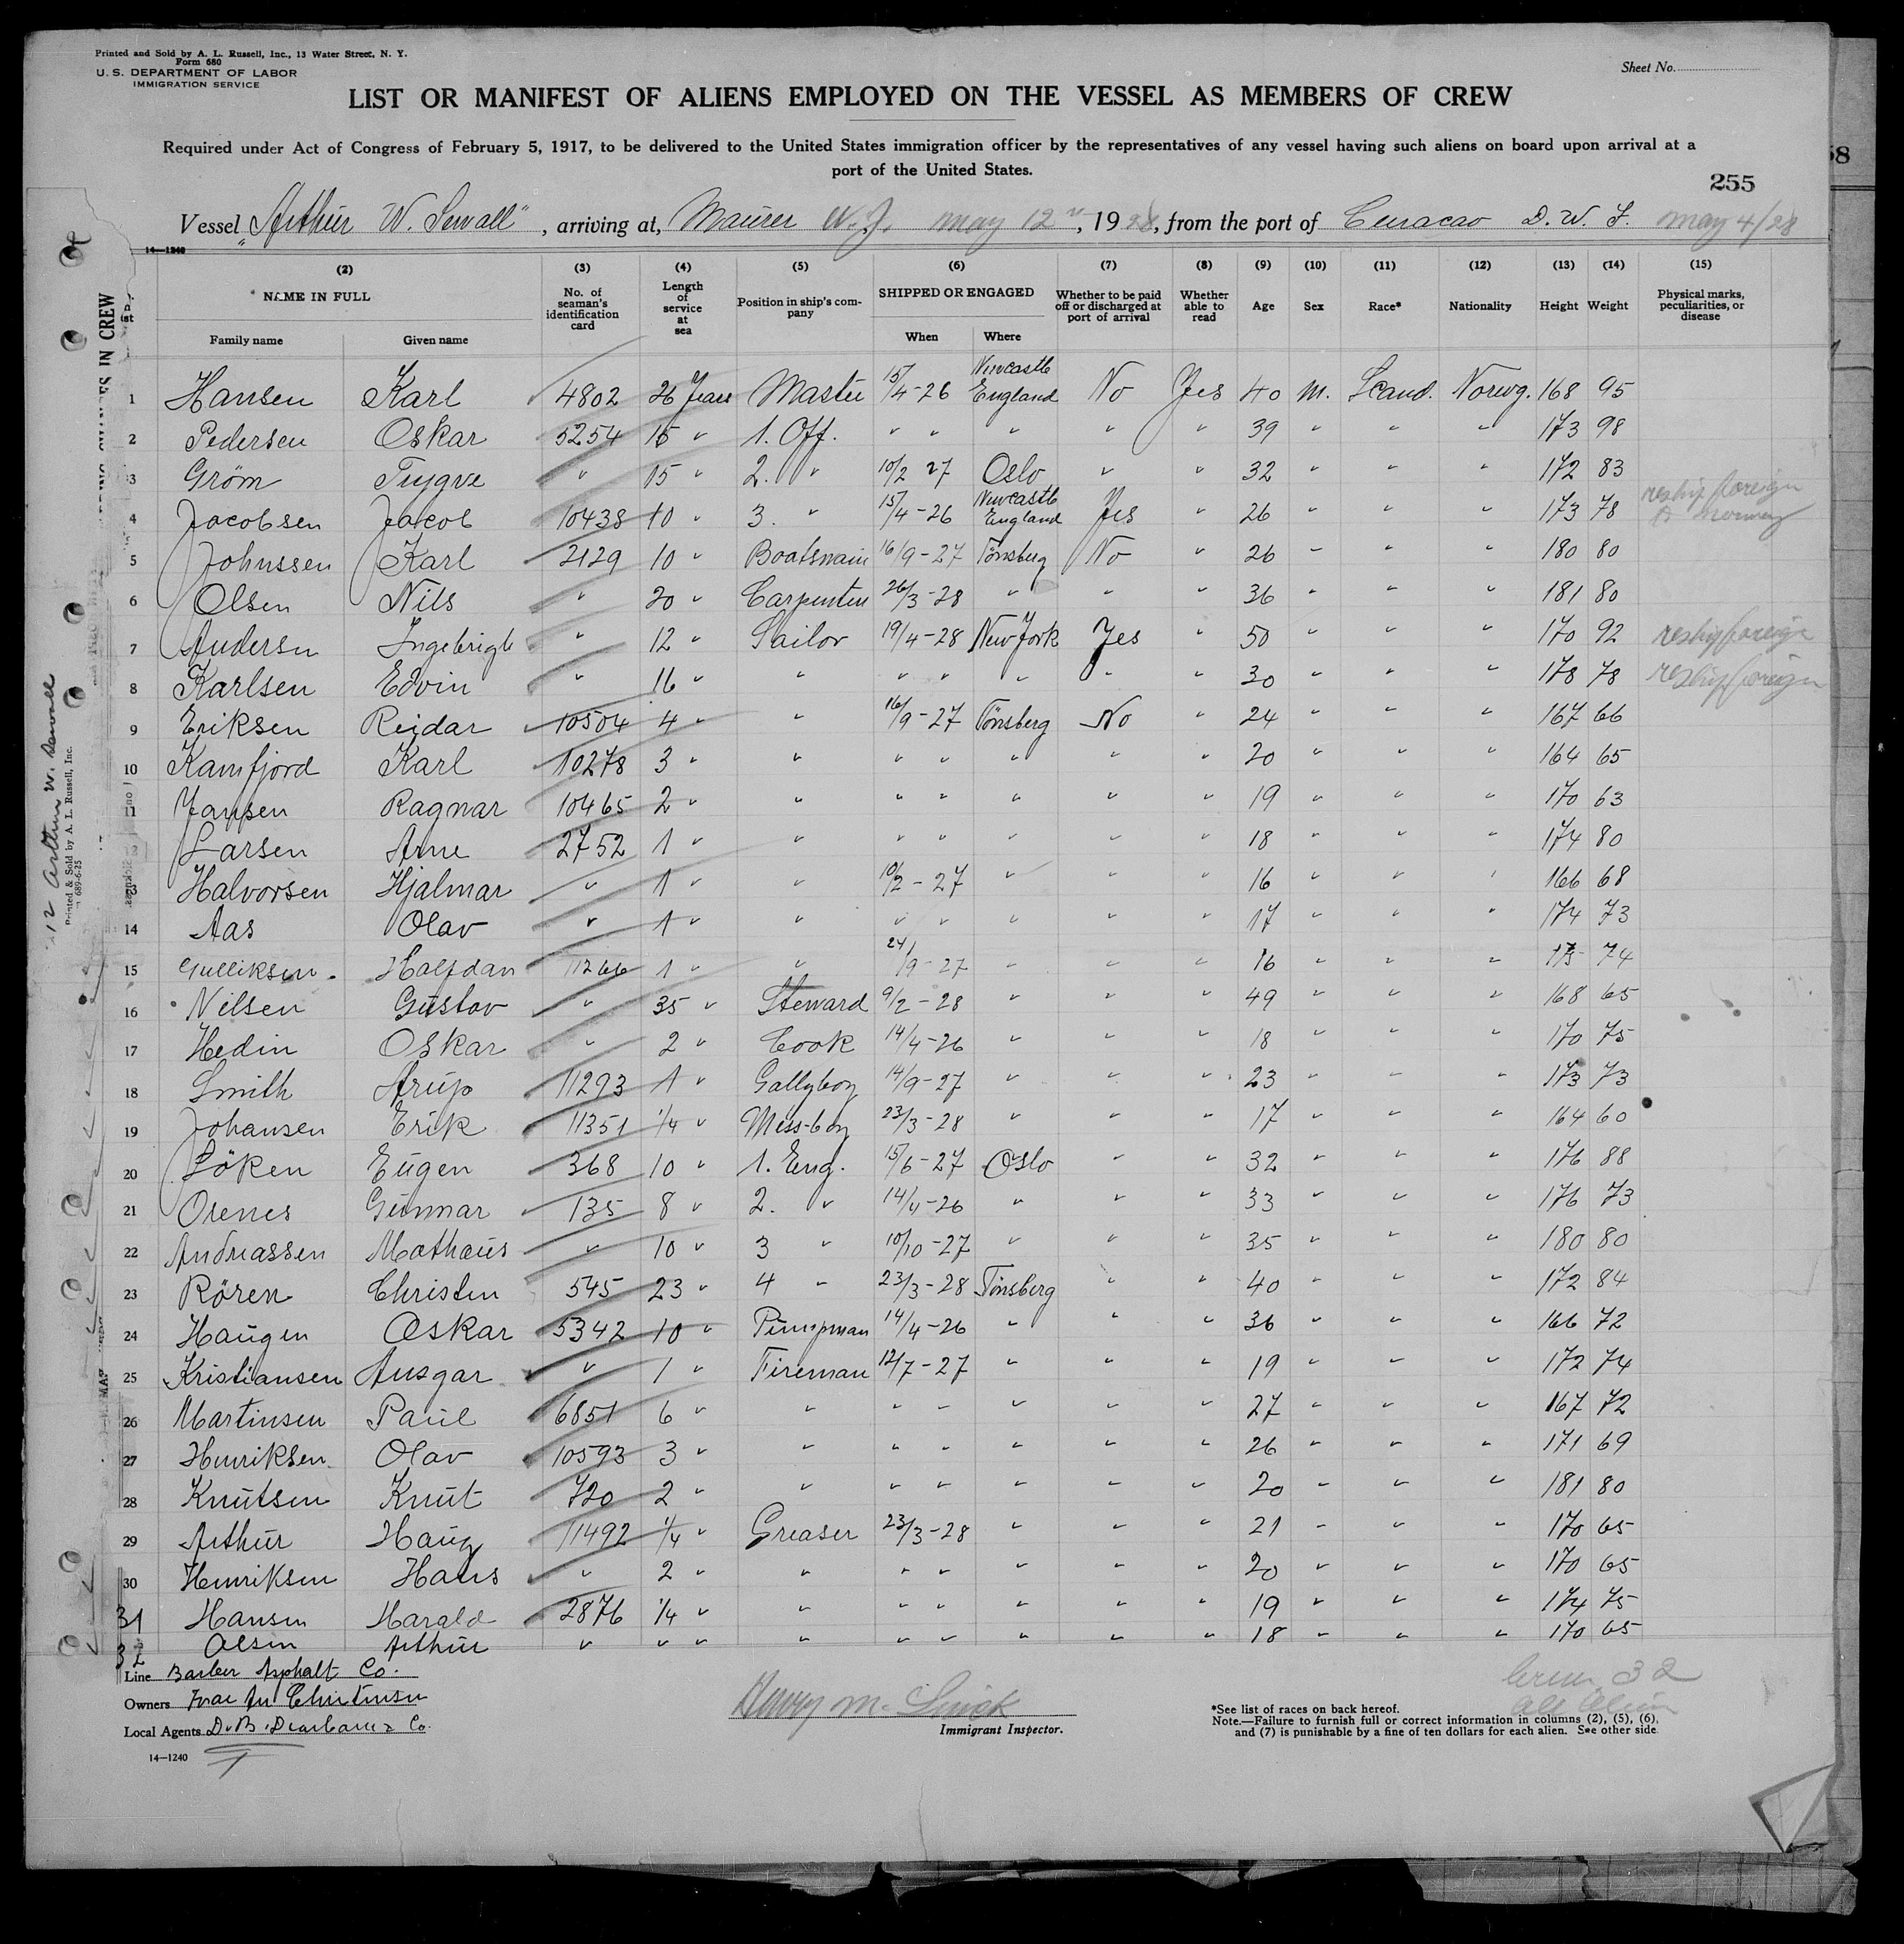 Printed and Sold by A. L. Russell, Inc., 13 Water Street, N. Y.
Form 680
U. S. DEPARTMENT OF LABOR
IMMIGRATION SERVICE
Sheet No.
LIST OR MANIFEST OF ALIENS EMPLOYED ON THE VESSEL AS MEMBERS OF CREW
Required under Act of Congress of February 5, 1917, to be delivered to the United States immigration officer by the representatives of any vessel having such aliens on board upon arrival at a
port of the United States.
255
Vessel "Arthur W. Sewall", arriving at, Maurer N.J. May 12th, 1928, from the port of Curacao D. W. I. May 4/28
14—1240
(2) (3) (4) (5) (6) (7) (8) (9) (10) (11) (12) (13) (14) (15)
NAME IN FULL No. of seaman's identification card Length of service at sea Position in ship's company SHIPPED OR ENGAGED Whether to be paid off or discharged at port of arrival Whether able to read Age Sex Race* Nationality Height Weight Physical marks, peculiarities, or disease
Family name Given name When Where
1 Hansen Karl 4802 26 Years Master 15/4-26 Newcastle England No Yes 40 M. Scand. Norwg. 168 95
2 Pedersen Oskar 5254 15 " 1. Off. " " " " " 39 " " " 173 98
3 Gröm Trygve " 15 " 2. " 10/2 27 Oslo " " 32 " " " 172 83
4 Jacobsen Jacob 10438 10 " 3. " 15/4-26 Newcastle England Yes " 26 " " " 173 78 reship foreign to Norway
5 Johnssen Karl 2129 10 " Boatswain 16/9-27 Tönsberg No " 26 " " " 180 80
6 Olsen Nils " 20 " Carpenter 26/3-28 " " " 36 " " " 181 80
7 Andersn Ingebrigt " 12 " Sailor 19/4-28 New York Yes " 50 " " " 170 92 reship foreign
8 Karlsen Edvin " 16 " " " " " " " 30 " " " 178 78 reship foreign
9 Eriksen Reidar 10504 4 " " 16/9-27 Tönsberg No " 24 " " " 167 66
10 Kamfjord Karl 10278 3 " " " " " " " 20 " " " 164 65
11 Jansen Ragnar 10465 2 " " " " " " " 19 " " " 170 63
Larsen Arne 2752 1 " " " " " " " 18 " " " 174 80
Halvorsen Hjalmar " 1 " " 10/2-27 " " " 16 " " " 166 68
14 Aas Olav " 1 " " " " " " " 17 " " " 174 73
15 Gulliksen Halfdan 11266 1 " " 24/9-27 " " " 16 " " " 175 74
16 Nilsen Gustav " 35 " Steward 9/2-28 " " " 49 " " " 168 65
17 Hedin Oskar " 2 " Cook 14/4-26 " " " 18 " " " 170 75
18 Smith Arup 11293 1 " Gallyboy 14/9-27 " " " 23 " " " 173 73
19 Johansen Erik 11351 1/4 " Mess-boy 23/3-28 " " " 17 " " " 164 60
20 Löken Eugen 368 10 " 1. Eng. 15/6-27 Oslo " " 32 " " " 176 88
21 Orenes Gunnar 135 8 " 2. " 14/4-26 " " " 33 " " " 176 73
22 Andreassen Mathaus " 10 " 3 " 10/10-27 " " " 35 " " " 180 80
23 Rören Christen 545 23 " 4 " 23/3-28 Tönsberg " " 40 " " " 172 84
24 Haugen Oskar 5342 10 " Pumpman 14/4-26 " " " 36 " " " 166 72
25 Kristiansen Ansgar " 1 " Fireman 12/7-27 " " " 19 " " " 172 74
26 Martinsen Paul 6851 6 " " " " " " " 27 " " " 167 72
27 Henriksen Olav 10593 3 " " " " " " " 26 " " " 171 69
28 Knutsen Knut 720 2 " " " " " " " 20 " " " 181 80
29 Arthur Haug 11492 1/4 " Greaser 23/3-28 " " " 21 " " " 170 65
30 Henriksen Hans " 2 " " " " " " " 20 " " " 170 65
31 Hansen Harald 2876 1/4 " " " " " " " 19 " " " 174 75
32 Olsen Arthur " " " " " " " " " 18 " " " 170 65
Line Barber Asphalt Co.
Owners Ivar An Christensen
Local Agents D. B. Dearborn & Co.
14—1240
Immigrant Inspector.
Crew 32
*See list of races on back hereof.
Note.—Failure to furnish full or correct information in columns (2), (5), (6),
and (7) is punishable by a fine of ten dollars for each alien. See other side.
Arthur W. Sewall
Printed & Sold by A. L. Russell, Inc.